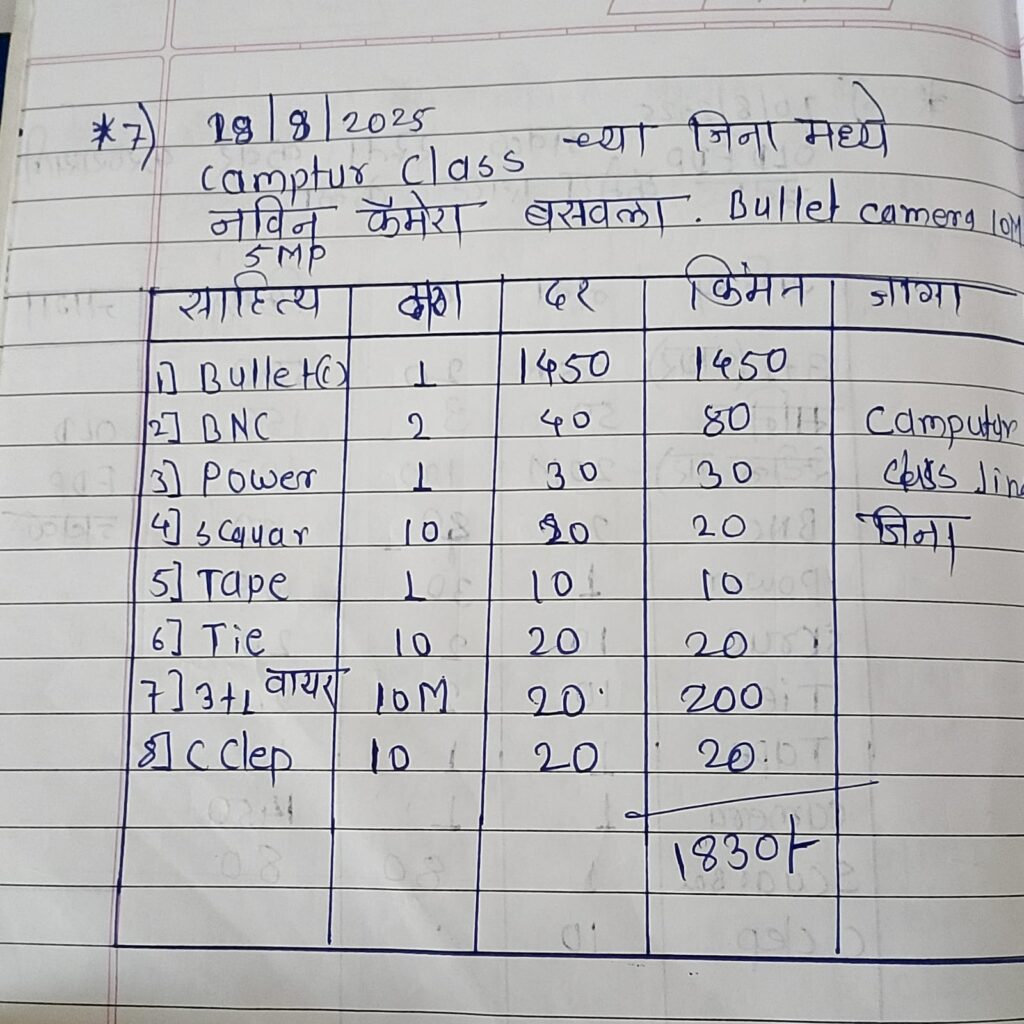 *7) 18/8/2025
Camptur Class च्या जिना मध्ये
नविन कॅमेरा बसवला. Bullet camera 10M
5MP
साहित्य दर किंमत जागा
1] Bullet(C) 1 1450 1450
2] BNC 2 40 80 Camputur
3] Power 1 30 30 class line
4] scquar 10 20 20 जिना
5] Tape 1 10 10
6] Tie 10 20 20
7] 3+1 वायर 10M 20 200
8] C Clep 10 20 20
1830/-